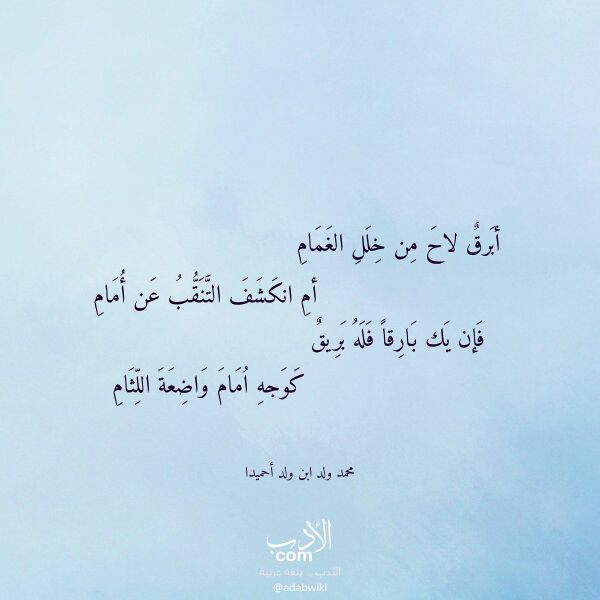 أَبَرقٌ لاحَ مِن خِلَلِ الغَمَامِ
أمِ انكَشَفَ التَّنَقُّبُ عَن أُمَامِ
فَإن يَك بَارِقاً فَلَهُ بَرِيقٌ
كَوَجهِ اُمَامَ وَاضِعَةَ اللِّثَامِ
محمد ولد ابن ولد أحميدا
الأدب
com
الأدب .. بلغة عربية
@adabwiki